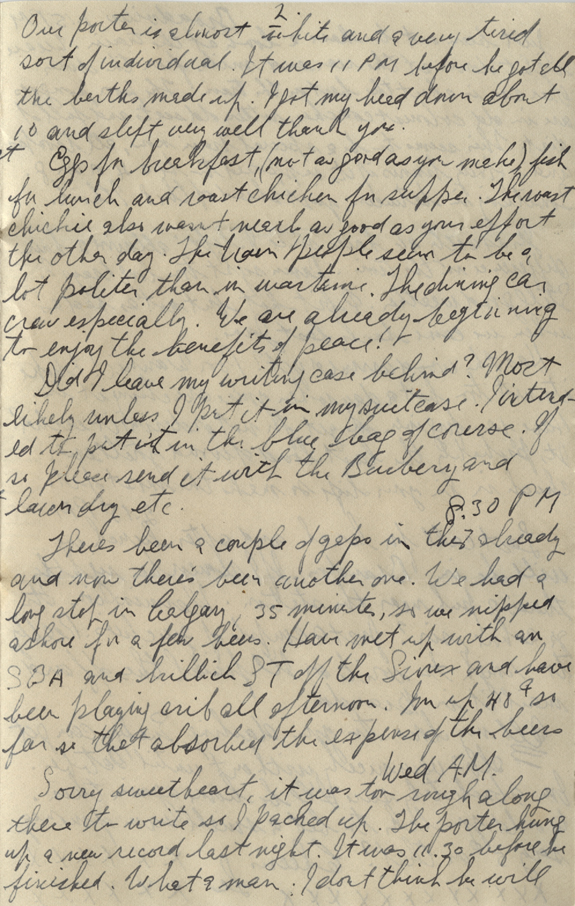 2
Our porter is almost white and a very tired
sort of individual. It was 11 PM before he got all
the berths made up. I got my head down about
10 and slept very well thank you.
Eggs for breakfast, (not as good as you make) fish
for lunch and roast chicken for supper. The roast
chickie also wasn't nearly as good as your effort
the other day. The train people seem to be a
lot politer than in wartime. The dining car
crew especially. We are already beginning
to enjoy the benefits of peace!
Did I leave my writing case behind? Most
likely unless I put it in my suitcase. I intend-
ed to put it in the blue bag of course. If
so please send it with the Burberry and
laundry etc.
8.30 PM
There's been a couple of gaps in this already
and now there's been another one. We had a
long stop in Calgary, 35 minutes, so we nipped
ashore for a few beers. Have met up with an
SBA and killick ST off the Sioux and have
been playing crib all afternoon. I'm up 48¢ so
far so that absorbed the expense of the beers
Wed A.M.
Sorry sweetheart, it was too rough along
there to write so I packed up. The porter hung
up a new record last night. It was 11.30 before he
finished. What a man. I don't think he will